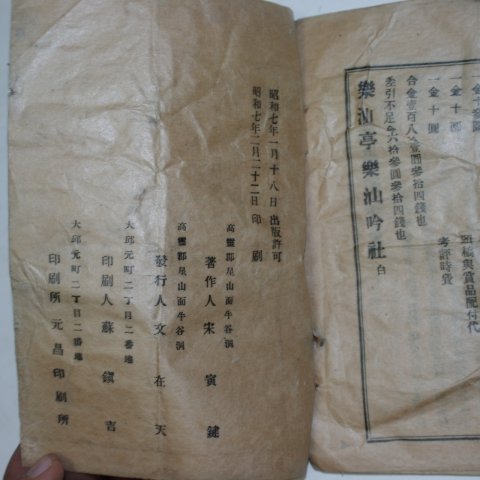 一金十圓
一金十圓
合金壹百八拾壹圓參拾四錢也
差引不足金六拾參圓參拾四錢也
樂汕亭樂汕吟社 白
考評時費
昭和七年一月十八日 出版許可
昭和七年二月二十二日 印刷
高靈郡星山面牛谷洞
著作人 宋寅鍵
高靈郡星山面牛谷洞
發行人 文在天
大邱元町二丁目二番地
印刷人 蘇鎭吉
大邱元町二丁目二番地
印刷所 元昌印刷所